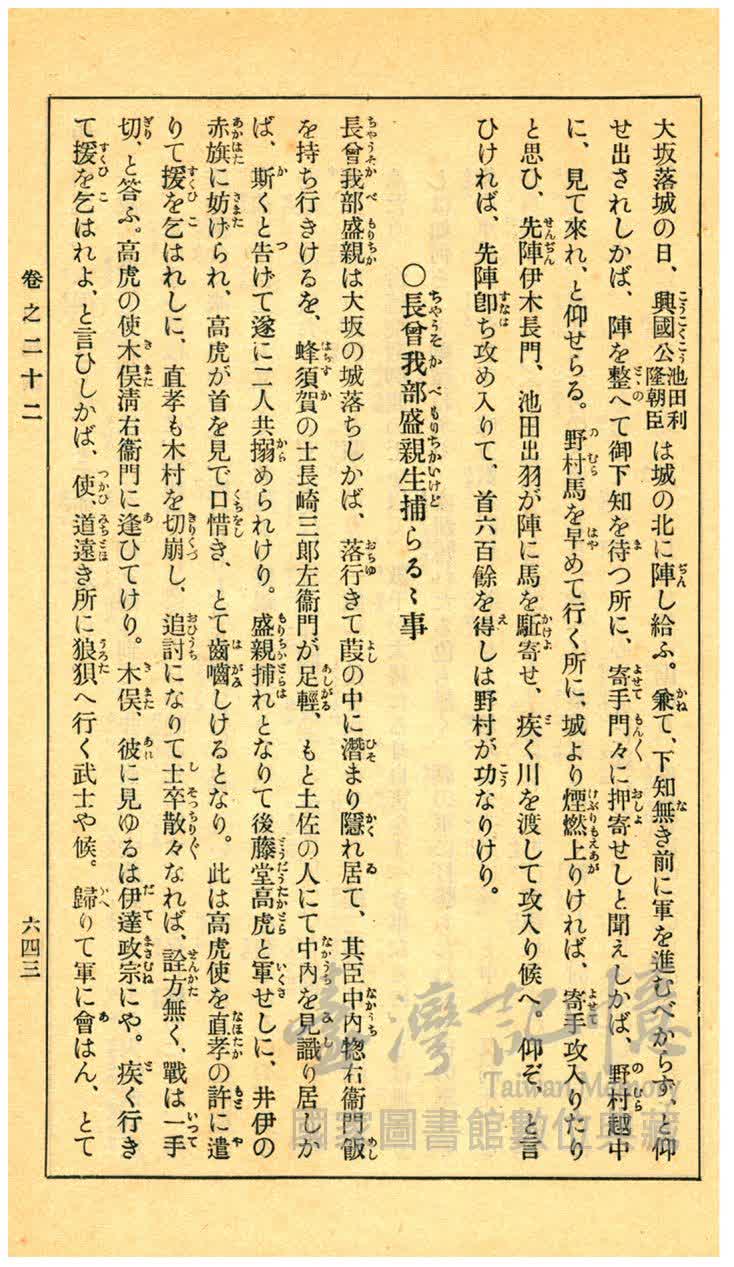 大坂落城の日、興國公池田利隆朝臣は城の北に陣し給ふ。兼て、下知無き前に軍を進むべからず、と仰
せ出されしかば、陣を整へて御下知を待つ所に、寄手門々に押寄せしと聞えしかば、野村越中
に、見て來れ、と仰せらる。野村馬を早めて行く所に、城より煙燃上りければ、寄手攻入りたり
と思ひ、先陣伊木長門、池田出羽が陣に馬を駈寄せ、疾く川を渡して攻入り候へ。仰ぞ、と言
ひければ、先陣卽ち攻め入りて、首六百餘を得しは野村が功なりけり。
〇長曾我部盛親生捕らるゝ事
長曾我部盛親は大坂の城落ちしかば、落行きて葭の中に潛まり隱れ居て、其臣中內惣右衞門飯
を持ち行きけるを、蜂須賀の士長崎三郎左衞門が足輕、もと土佐の人にて中內を見識り居しか
ば、斯くと告げて遂に二人共搦められけり。盛親捕れとなりて後藤堂高虎と軍せしに、井伊の
赤旗に妨げられ、高虎が首を見で口惜き、とて齒嚙しけるとなり。此は高虎使を直孝の許に遣
りて援を乞はれしに、直孝も木村を切崩し、追討になりて士卒散々なれば、詮方無く、戰は一手
切、と答ふ。高虎の使木俣淸右衞門に逢ひてけり。木俣、彼に見ゆるは伊達政宗にや。疾く行き
て援を乞はれよ、と言ひしかば、使、道遠き所に狼狽へ行く武士や候。歸りて軍に會はん、とて
卷之二十二
六四三
臺灣記憶
Taiwan Memory
國家圖書館數位典藏